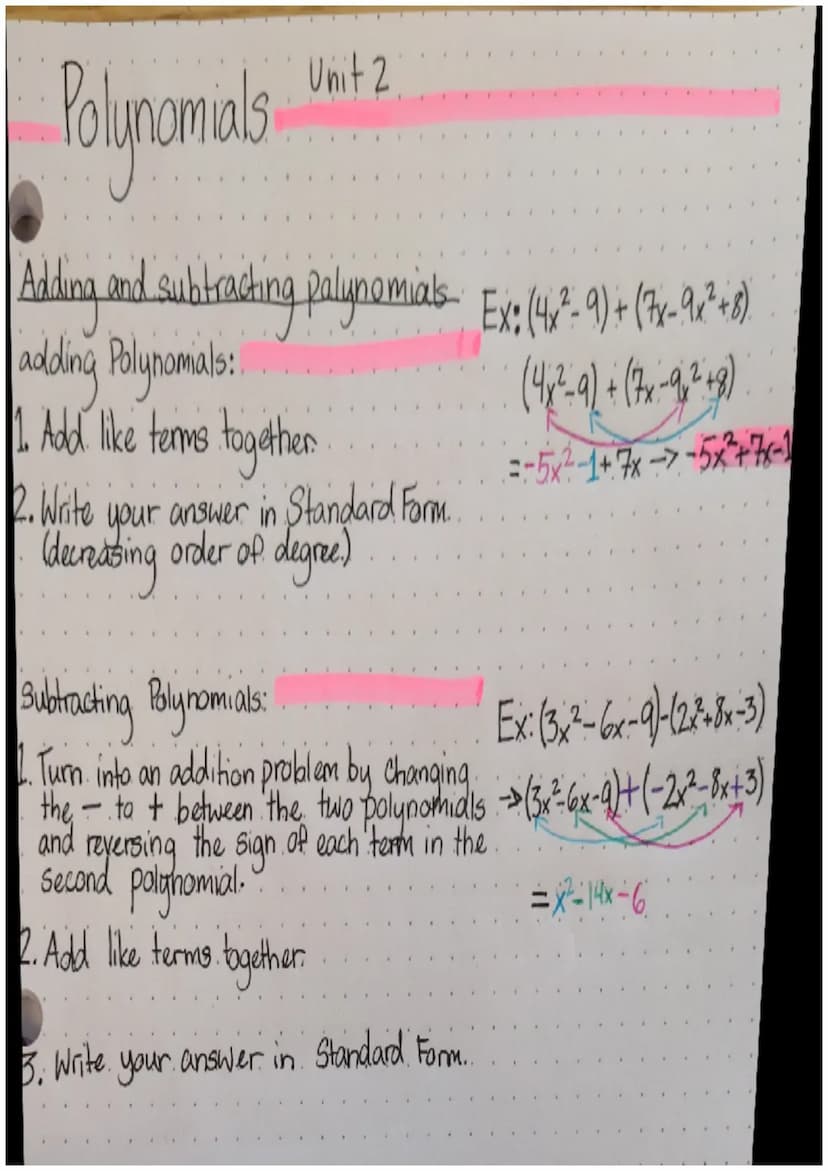 Polynomials Unit 2
Adding and subtracting palynomials
adding Polynomials:
1. Add like terms together.
2. Write your answer in Standard Form.
(decreasing order of degree.)
Ex: (4x²-9)+(7x-9x²+8)
(4x²-9)+(7x-9x²+8)
=-5x²-1+7x→-5x²+7x-1
Subtracting Polynomials:
1. Turn into an addition problem by changing
the - to + between the two polynomials
and reversing the sign of each term in the
second polynomial.
2. Add like terms together.
3. Write your answer in Standard Form.
Ex: (3x²-6x-9)-(2x²+8x-3)
→(3x²-6x-9)+(-2x²-8x+3)
=x²-14x-6